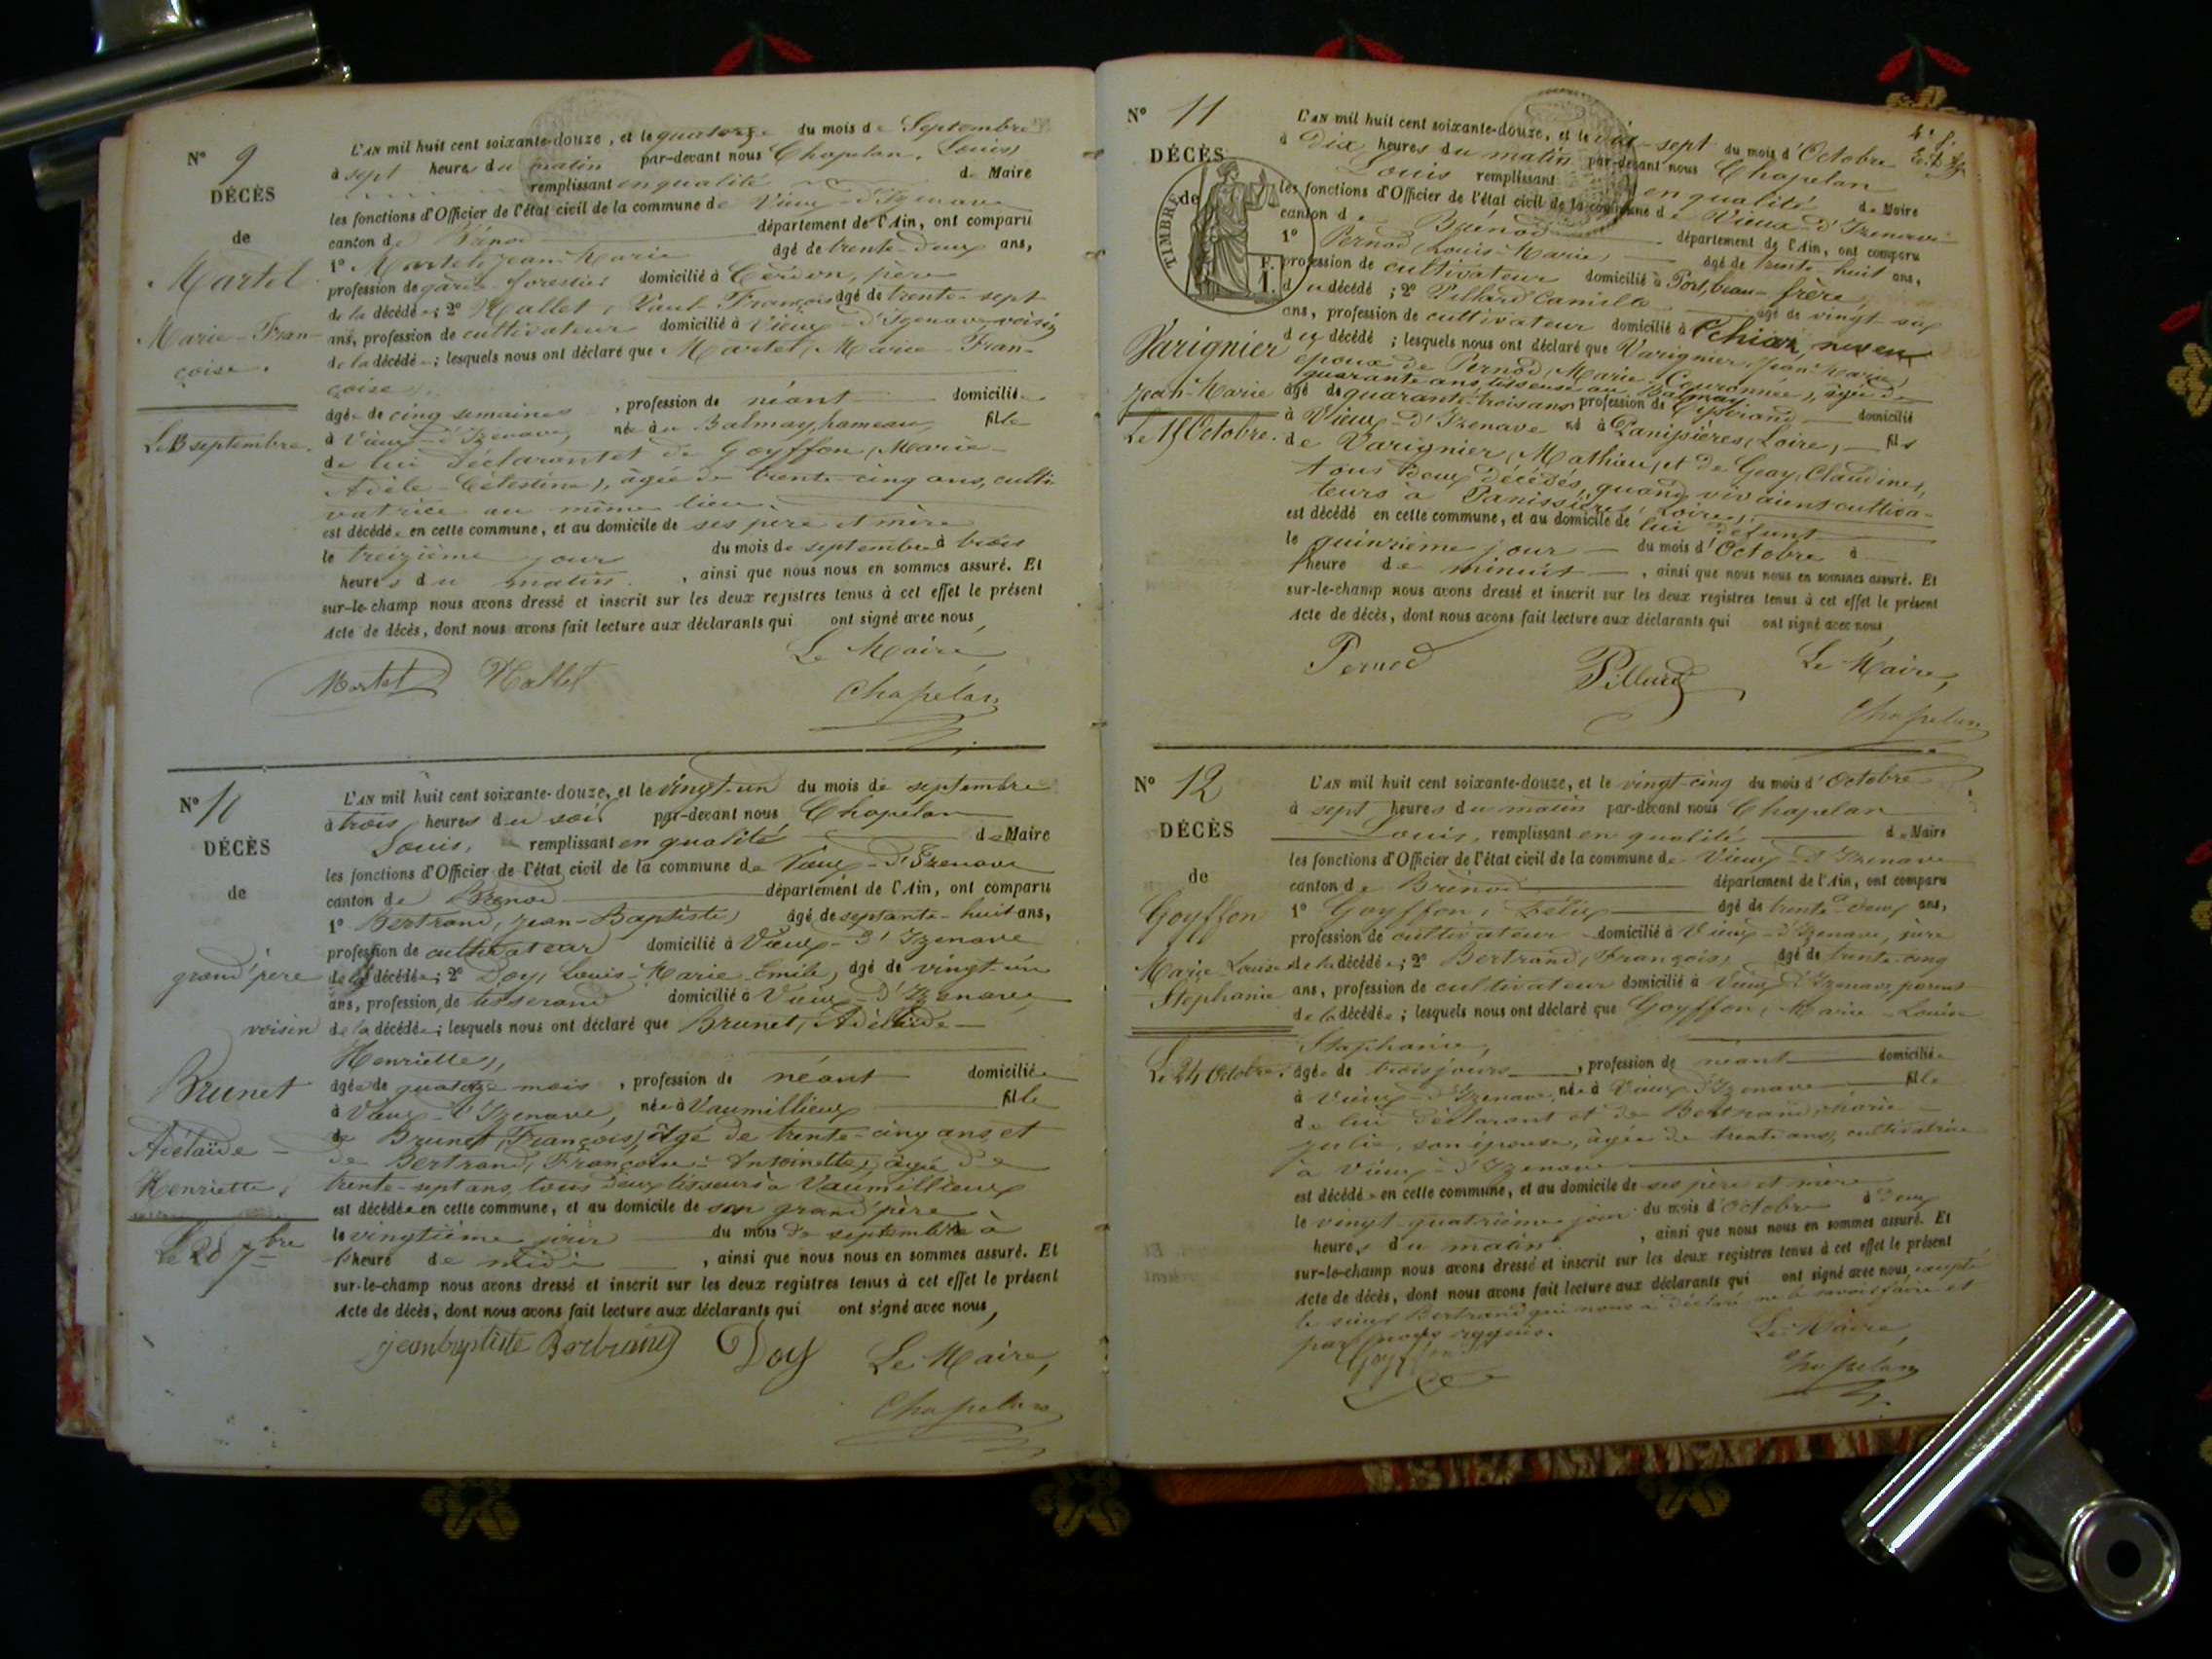 N° 9
DÉCÈS
de
Martel
Marie-Fran-
çoise.
Le 13 septembre.
L'AN mil huit cent soixante-douze, et le quatorze du mois de Septembre
à sept heures du matin par-devant nous Chapelan, Louis,
remplissant en qualité de Maire
les fonctions d'Officier de l'état civil de la commune de Vieux-d'Izenave
canton de Brénod département de l'Ain, ont comparu
1° Martel, Jean-Marie âgé de trente-deux ans,
profession de garde-forestier domicilié à Cerdon, père
de la décédée; 2° Mallet, Paul-François âgé de trente-sept
ans, profession de cultivateur domicilié à Vieux-d'Izenave, voisin
de la décédée; lesquels nous ont déclaré que Martel, Marie-Fran-
çoise,
âgée de cinq semaines, profession de néant domiciliée
à Vieux-d'Izenave, née à au Balmay, hameau, fille
de lui déclarant et de Goyffon, Marie-
Adèle-Célestine, âgée de trente-cinq ans, culti-
vatrice au même lieu
est décédée en cette commune, et au domicile de ses père et mère
le treizième jour du mois de septembre à trois
heures du matin, ainsi que nous nous en sommes assuré. Et
sur-le-champ nous avons dressé et inscrit sur les deux registres tenus à cet effet le présent
Acte de décès, dont nous avons fait lecture aux déclarants qui ont signé avec nous,
Le Maire,
Martel Mallet
Chapelan
N° 10
DÉCÈS
de
grand'père
voisin
Brunet
Adélaïde-
Henriette,
Le 20 7bre
L'AN mil huit cent soixante-douze, et le vingt-un du mois de septembre
à trois heures du soir par-devant nous Chapelan
Louis, remplissant en qualité de Maire
les fonctions d'Officier de l'état civil de la commune de Vieux-d'Izenave
canton de Brénod département de l'Ain, ont comparu
1° Bertrand, Jean-Baptiste, âgé de septante-huit ans,
profession de cultivateur domicilié à Vieux-d'Izenave
de la décédée; 2° Doy, Louis-Marie-Emile, âgé de vingt-un
ans, profession de tisserand domicilié à Vieux-d'Izenave,
de la décédée; lesquels nous ont déclaré que Brunet, Adélaïde-
Henriette,
âgée de quatorze mois, profession de néant domiciliée
à Vieux-d'Izenave, née à Vaumillieux fille
de Brunet, François, âgé de trente-cinq ans, et
de Bertrand, Françoise-Antoinette, âgée de
trente-sept ans, tous deux tisseurs à Vaumillieux
est décédée en cette commune, et au domicile de son grand'père
le vingtième jour du mois de septembre à
l'heure de midi, ainsi que nous nous en sommes assuré. Et
sur-le-champ nous avons dressé et inscrit sur les deux registres tenus à cet effet le présent
Acte de décès, dont nous avons fait lecture aux déclarants qui ont signé avec nous,
jean baptiste Bertrand Doy Le Maire,
Chapelan
N° 11
DÉCÈS
de
TIMBRE
Varignier
Jean-Marie
Le 15 Octobre.
L'AN mil huit cent soixante-douze, et le dix-sept du mois d'Octobre
à Dix heures du matin par-devant nous Chapelan
Louis remplissant en qualité de Maire
les fonctions d'Officier de l'état civil de la commune de Vieux-d'Izenave
canton de Brénod département de l'Ain, ont comparu
1° Pernod, Louis-Marie, âgé de trente-huit ans,
profession de cultivateur domicilié à Port, beau-frère,
du décédé; 2° Pillard Camille âgé de vingt-six
ans, profession de cultivateur domicilié à Tchiar, neveu
du décédé; lesquels nous ont déclaré que Varignier, Jean-Marie,
époux de Pernod, Marie-Couronnée, âgée de
quarante ans, tisseuse au Balmay,
âgé de quarante-trois ans, profession de Tisserand domicilié
à Vieux-d'Izenave né à Panissières, Loire, fils
de Varignier, Mathieu, et de Geay, Claudine,
tous deux décédés, quand vivaient cultiva-
teurs à Panissières, Loire,
est décédé en cette commune, et au domicile de lui défunt
le quinzième jour du mois d'Octobre à
l'heure de minuit, ainsi que nous nous en sommes assuré. Et
sur-le-champ nous avons dressé et inscrit sur les deux registres tenus à cet effet le présent
Acte de décès, dont nous avons fait lecture aux déclarants qui ont signé avec nous,
Pernod Pillard Le Maire,
Chapelan
N° 12
DÉCÈS
de
Goyffon
Marie-Louise
Stéphanie
Le 24 Octobre.
L'AN mil huit cent soixante-douze, et le vingt-cinq du mois d'Octobre
à sept heures du matin par-devant nous Chapelan
Louis, remplissant en qualité de Maire
les fonctions d'Officier de l'état civil de la commune de Vieux-d'Izenave
canton de Brénod département de l'Ain, ont comparu
1° Goyffon, Félix âgé de trente-deux ans,
profession de cultivateur domicilié à Vieux-d'Izenave, père
de la décédée; 2° Bertrand, François, âgé de trente-cinq
ans, profession de cultivateur domicilié à Vieux-d'Izenave, parent
de la décédée; lesquels nous ont déclaré que Goyffon, Marie-Louise
Stéphanie,
âgée de trois jours, profession de néant domiciliée
à Vieux-d'Izenave, née à Vieux-d'Izenave fille
de lui déclarant et de Bertrand, Marie-
Julie, son épouse, âgée de trente ans, cultivatrice
à Vieux-d'Izenave
est décédée en cette commune, et au domicile de ses père et mère
le vingt-quatrième jour du mois d'Octobre à deux
heures du matin, ainsi que nous nous en sommes assuré. Et
sur-le-champ nous avons dressé et inscrit sur les deux registres tenus à cet effet le présent
Acte de décès, dont nous avons fait lecture aux déclarants qui ont signé avec nous, excepté
le sieur Bertrand qui nous a déclaré ne le savoir faire et
par nous requis.
Le Maire,
Goyffon
Chapelan